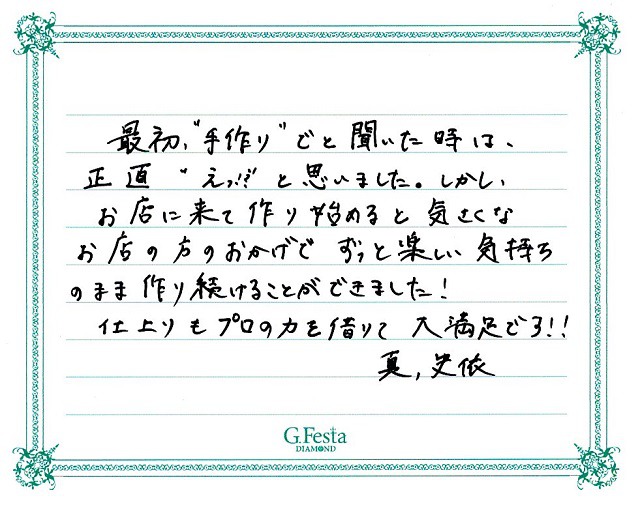 最初、"手作り"でと聞いた時は、
正直"えっ!?"と思いました。しかし、
お店に来て作り始めると気さくな
お店の方のおかげでずっと楽しい気持ち
のまま作り続けることができました!
仕上りもプロの力を借りて大満足でう!!
真,史依
G.Festa
DIAMOND